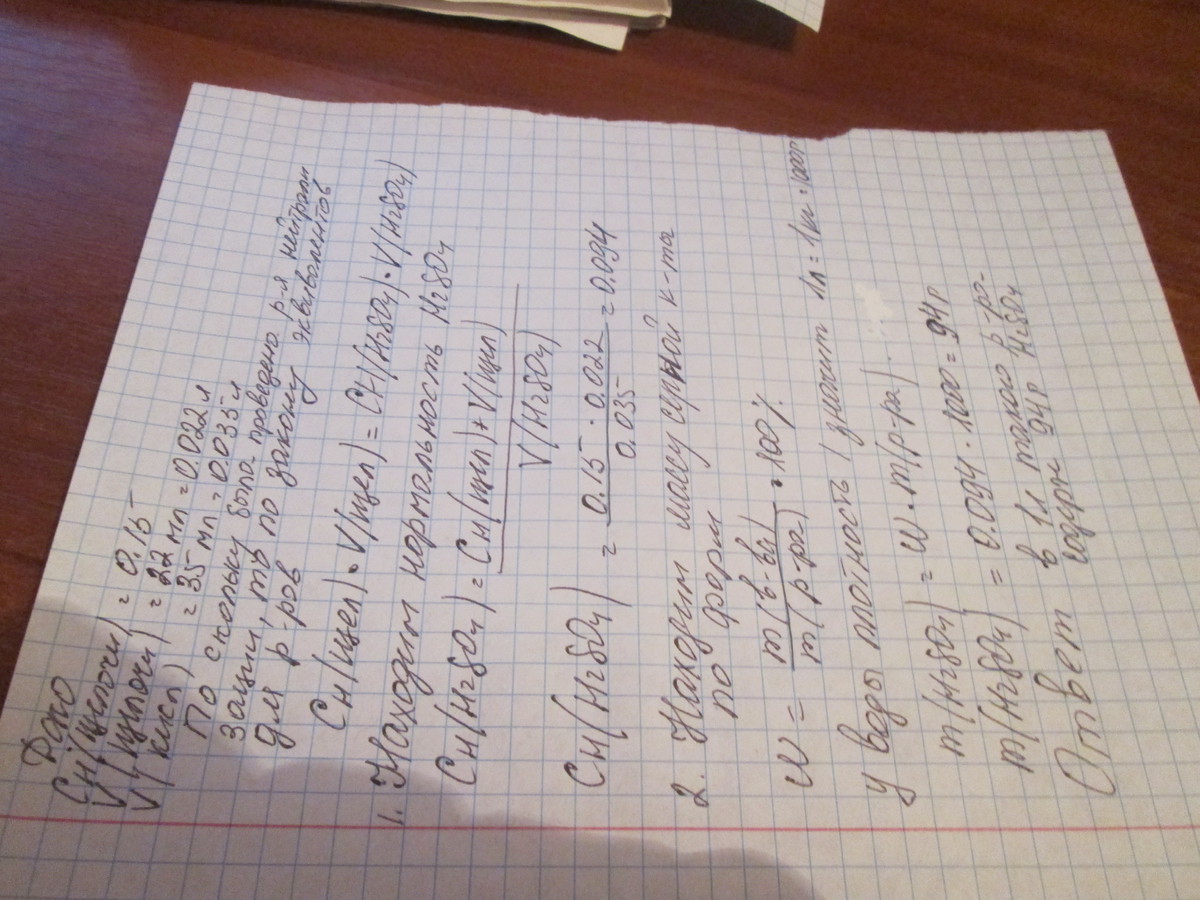 Дано
CН(щелочи) = 0.15
V(щелочи) = 22 мл = 0.022 л
V(кисл) = 35 мл = 0.035 л
По скольку было проведено р-я нейтрали
зации, то по закону эквивалентов
для р-ров
CН(щел)·V(щел) = CН(H2SO4)·V(H2SO4)
1. Находим нормальность H2SO4
CН(H2SO4) = CН(щел)*V(щел)
V(H2SO4)
CН(H2SO4) = 0.15·0.022 = 0.094
0.035
2. Находим массу серной к-та
по форм
ω = m(в-ва) · 100%
m(р-ра)
У воды плотность 1 значит 1л = 1кг = 1000г
m(H2SO4) = ω·m(р-ра)
m(H2SO4) = 0.094·1000 = 94г
Ответ в 1л такого р-ра-
94г H2SO4